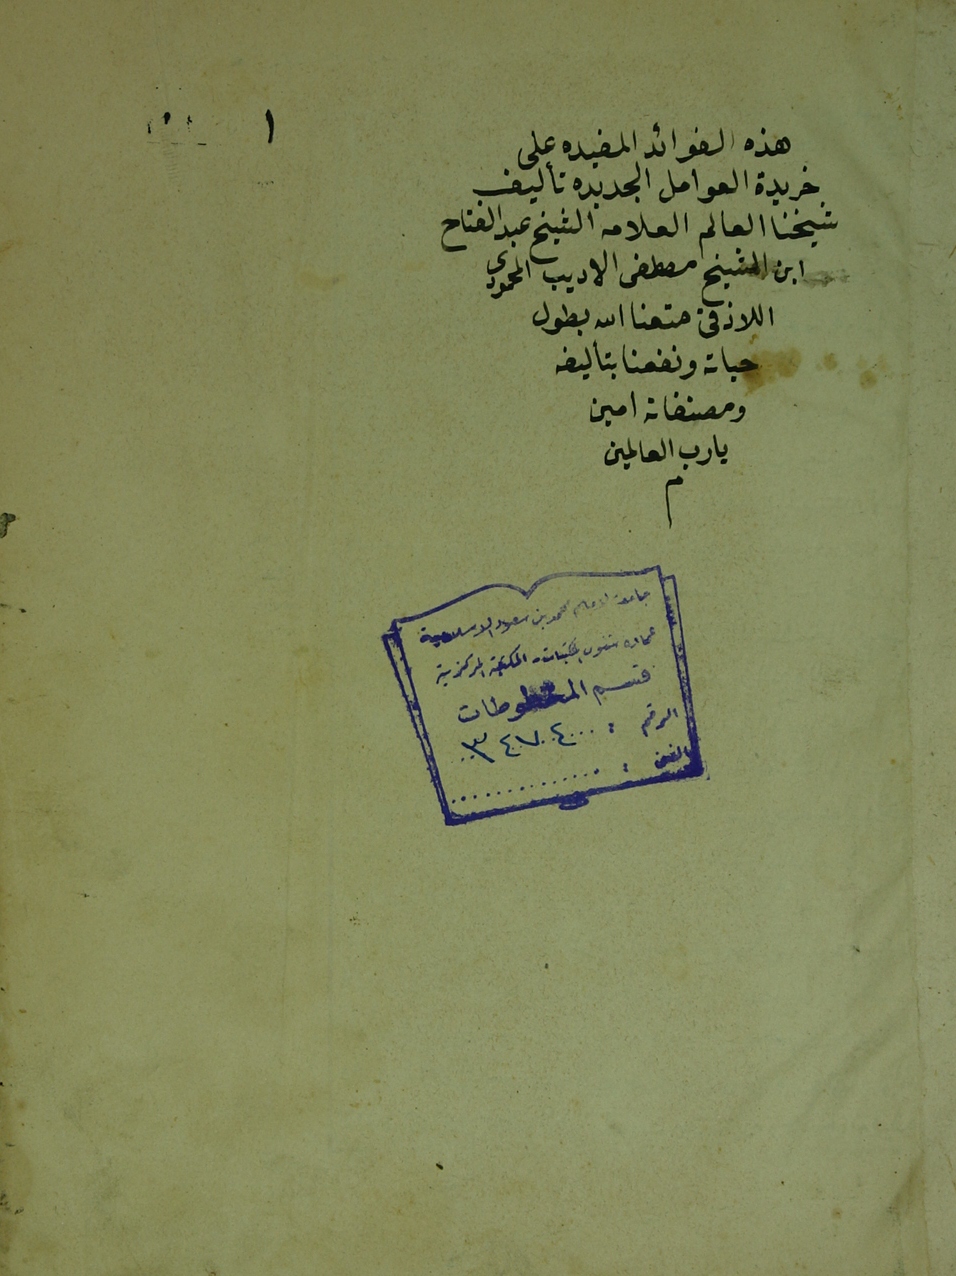 ١
هذه الفوائد المفيده على
خريدة العوامل الجديده تأليف
شيخنا العالم العلامه الشيخ عبدالفتاح
ابن الشيخ مصطفى الاديب المحمودي
اللاذقي متعنا الله بطول
حياته ونفعنا بتأليفه
ومصنفاته امين
يارب العالمين
م
جامعة الامام محمد بن سعود الاسلامية
عمادة شئون المكتبات - المكتبة المركزية
قسم المخطوطات
الرقم : ٣٤٧٠٤
الفن :